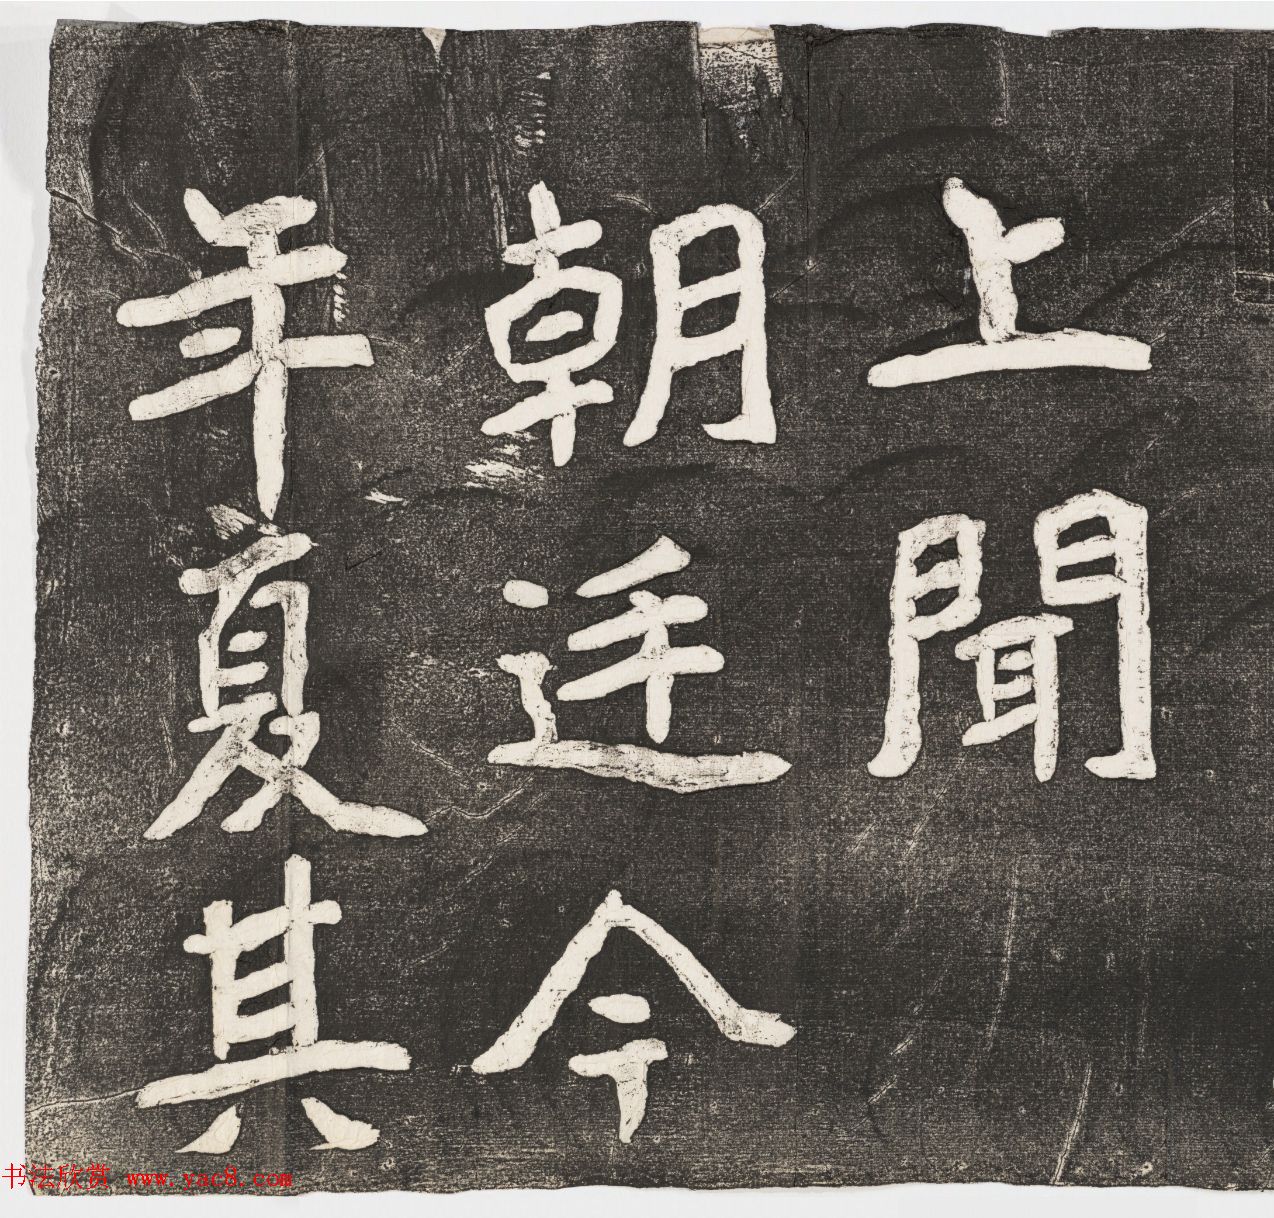 上聞
朝廷今
年夏其
书法欣赏 www.yac8.com